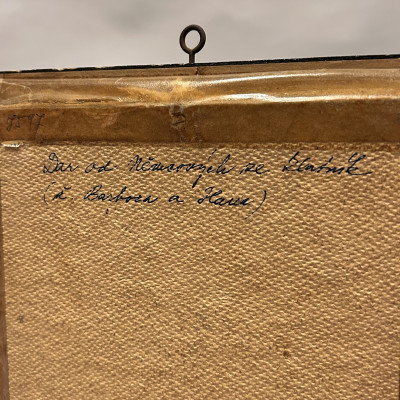 Dar od Němcových ze Klatník
(s. Barbora a Hana)